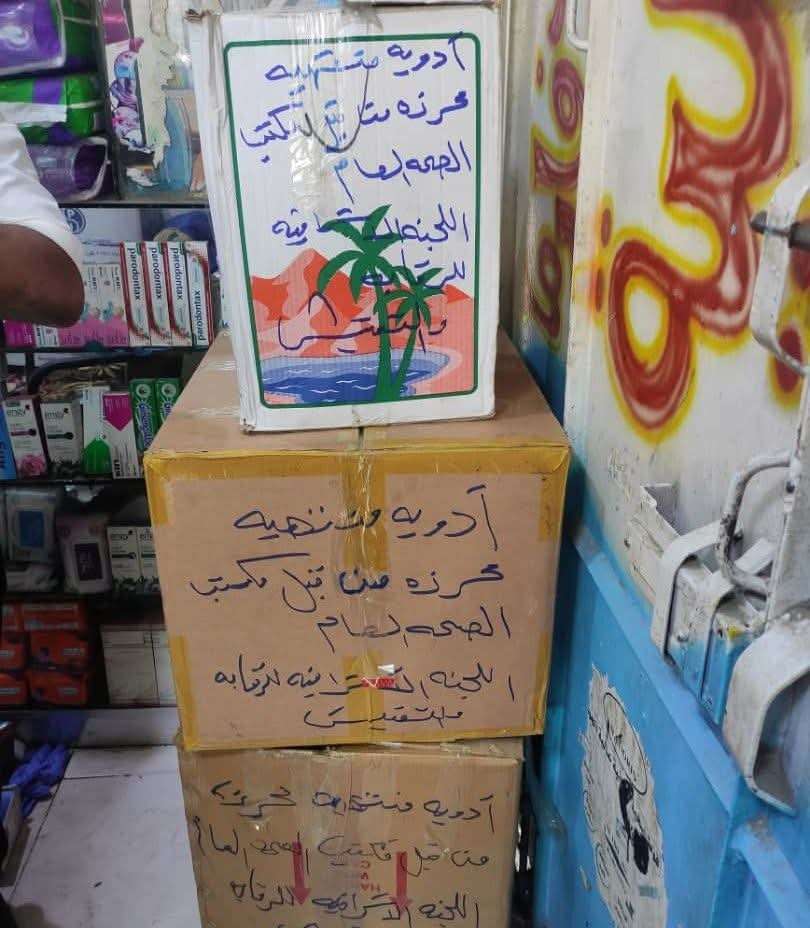 أدويه منتهيه
محرزه من قبل مكتب
الصحه العام
اللجنه الاشرافيه
للرقابه
والتفتيش
أدويه منتهيه
محرزه من قبل مكتب
الصحه العام
اللجنه الاشرافيه للرقابه
والتفتيش
أدويه منتهيه محرزه
من قبل مكتب الصحه العام
اللجنه الاشرافيه للرقابه
parodontax
parodontax
parodontax
parodontax